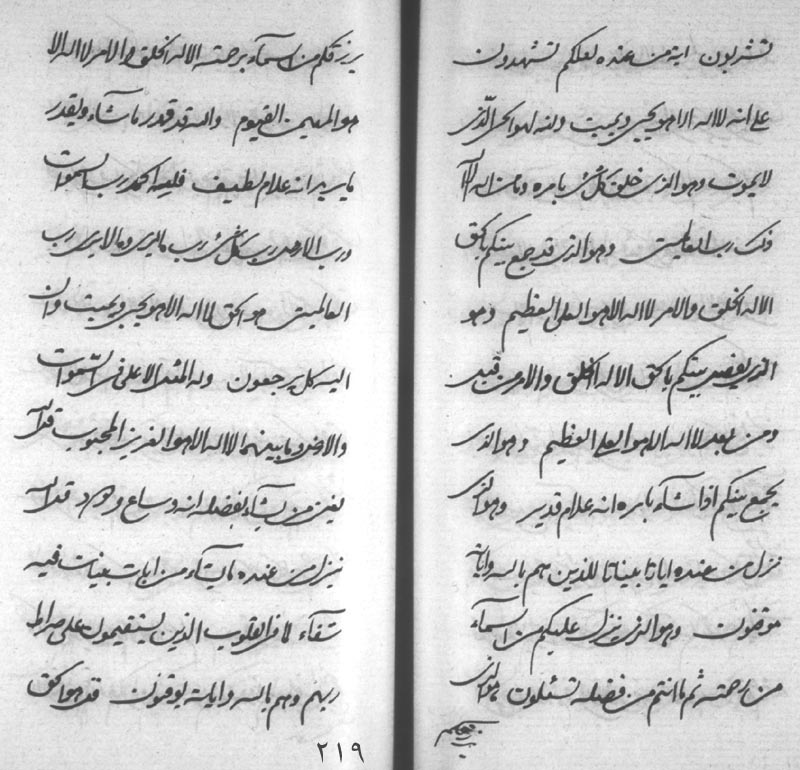 تشربون اية من عنده لعلكم تشهدون
على انه لا اله الا هو يحيي ويميت وانه لهو الحي الذي
لا يموت وهو الذي خلق كل شئ بامره وما من اله الا الله
ذلك رب العالمين وهو الذي قد جمع بينكم بالحق
الا له الخلق والامر لا اله الا هو العلي العظيم وهو
الذي يفصل بينكم بالحق الا له الخلق والامر من قبل
ومن بعد لا اله الا هو العلي العظيم وهو الذي
يجمع بينكم اذا شآء بامره انه علام قدير وهو الذي
نزل من عنده ايات بينات للذين هم بالله واياته
موقنون وهو الذي ينزل عليكم من السمآء
من رحمته ثم ما انتم من فضله تسئلون هو الذي
يرزقكم من السمآء برحمته الا له الخلق والامر لا اله الا
هو المهيمن القيوم والله قد قدر ما شآء ويقدر
ما يريد انه علام لطيف فلله الحمد رب السموات
ورب الارض رب كل شئ رب ما يرى وما لا يرى رب
العالمين هو الحق لا اله الا هو يحيي ويميت وان
اليه كل يرجعون وله المثل الاعلى في السموات
والارض وما بينهما لا اله الا هو العزيز المحبوب قل الله
يغني من يشآء بفضله انه وساع ودود قل الله
ينزل من عنده ما يشآء من ايات بينات فيه
شفآء لما في القلوب الذين يستقيمون على صراط
ربهم وهم بالله واياته يوقنون قل هو الحق
٢١٩